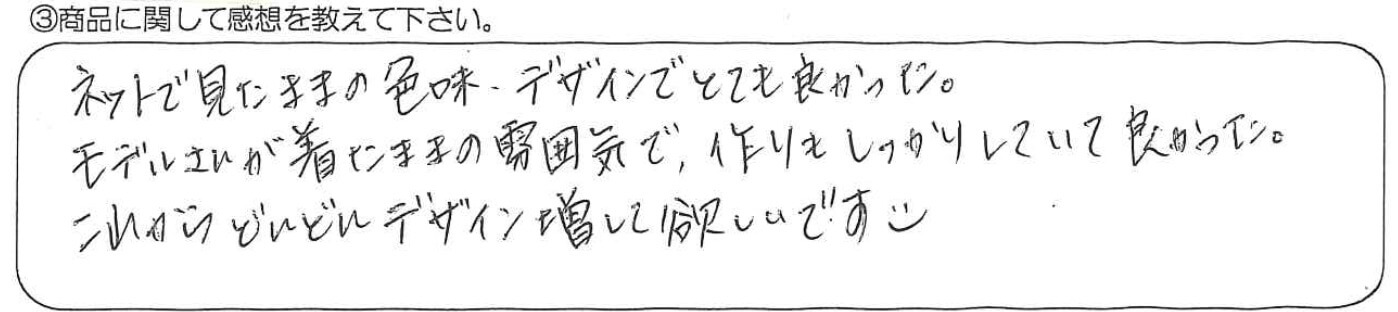 ③商品に関して感想を教えて下さい。
ネットで見たままの色味・デザインでとても良かった。
モデルさんが着たままの雰囲気で、作りもしっかりしていて良かった。
これからどんどんデザイン増して欲しいです